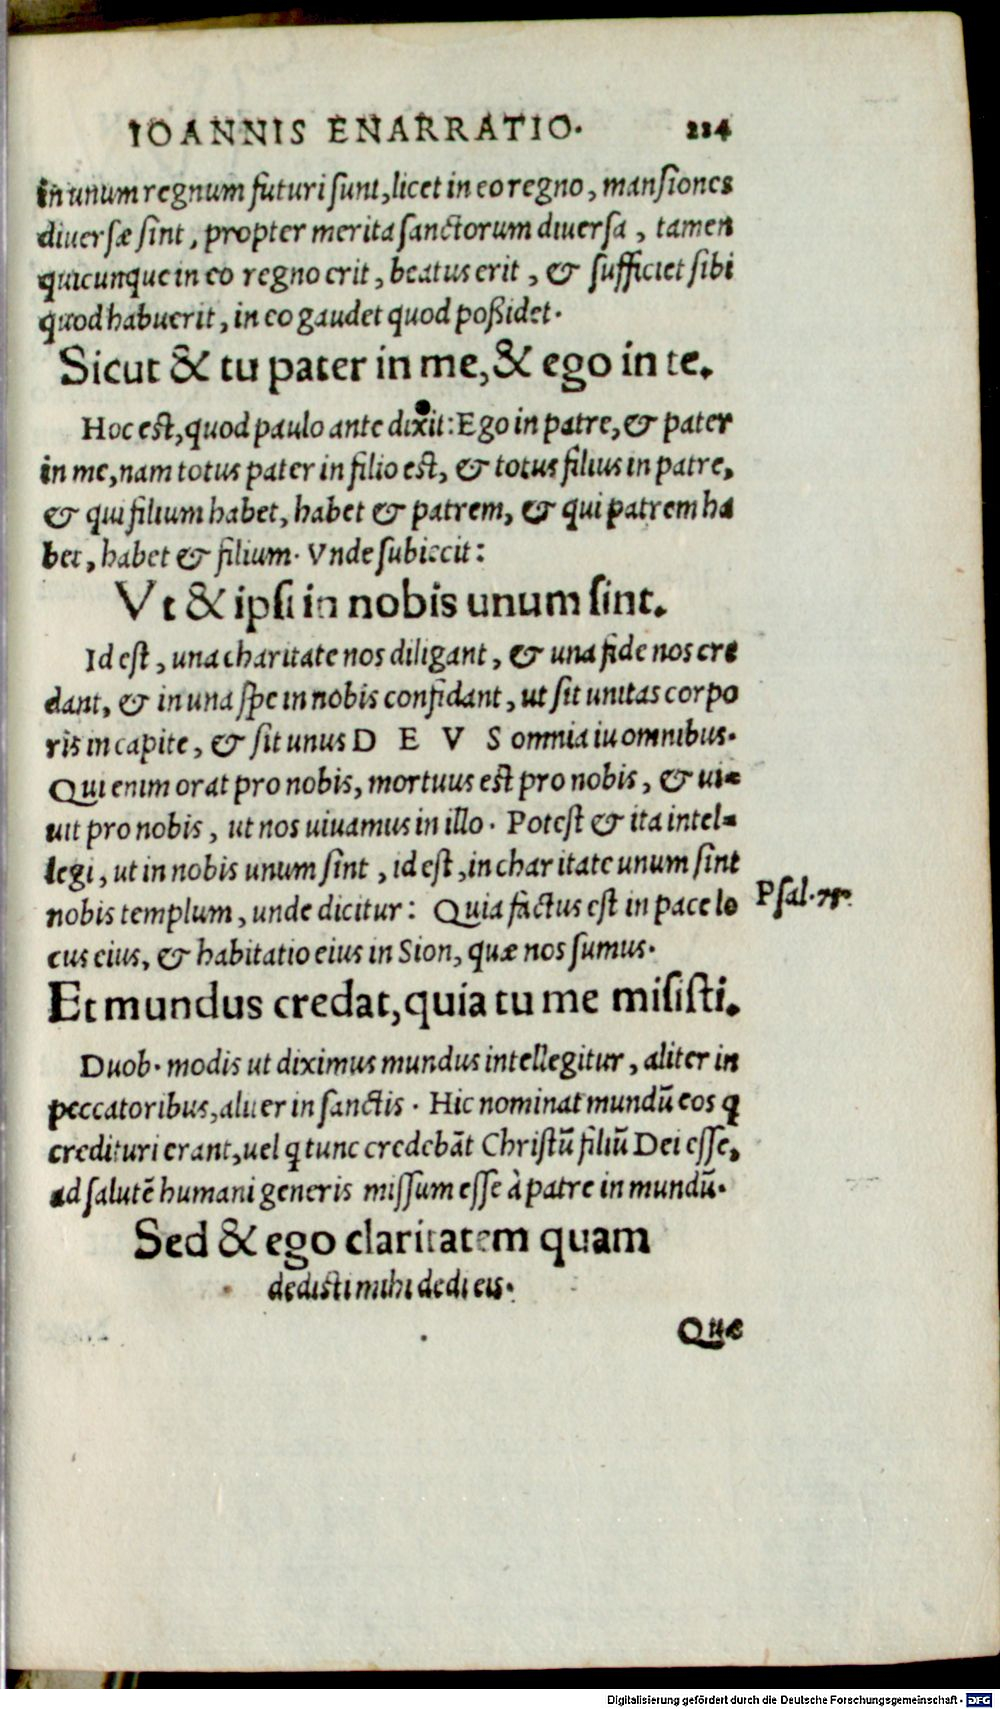 IOANNIS ENARRATIO. 224
in unum regnum futuri sunt, licet in eo regno, mansiones
diuersæ sint, propter merita sanctorum diuersa, tamen
quicunque in eo regno erit, beatus erit, & sufficiet sibi
quod habuerit, in eo gaudet quod poßidet.
Sicut & tu pater in me, & ego in te.
Hoc est, quod paulo ante dixit: Ego in patre, & pater
in me, nam totus pater in filio est, & totus filius in patre,
& qui filium habet, habet & patrem, & qui patrem ha
bet, habet & filium. Vnde subiecit:
Vt & ipsi in nobis unum sint.
Id est, una charitate nos diligant, & una fide nos cre
dant, & in una spe in nobis confidant, ut sit unitas corpo
ris in capite, & sit unus D E V S omnia iu omnibus.
Qui enim orat pro nobis, mortuus est pro nobis, & ui-
uit pro nobis, ut nos uiuamus in illo. Potest & ita intel-
legi, ut in nobis unum sint, id est, in charitate unum sint
nobis templum, unde dicitur: Quia factus est in pace lo
cus eius, & habitatio eius in Sion, quæ nos sumus.
Psal. 75.
Et mundus credat, quia tu me misisti.
Duob. modis ut diximus mundus intellegitur, aliter in
peccatoribus, aliter in sanctis. Hic nominat mundū eos q
credituri erant, uel q tunc credebāt Christū filiū Dei esse,
ad salutē humani generis missum esse à patre in mundū.
Sed & ego claritatem quam
dedisti mihi dedi eis.
Quæ
Digitalisierung gefördert durch die Deutsche Forschungsgemeinschaft - DFG